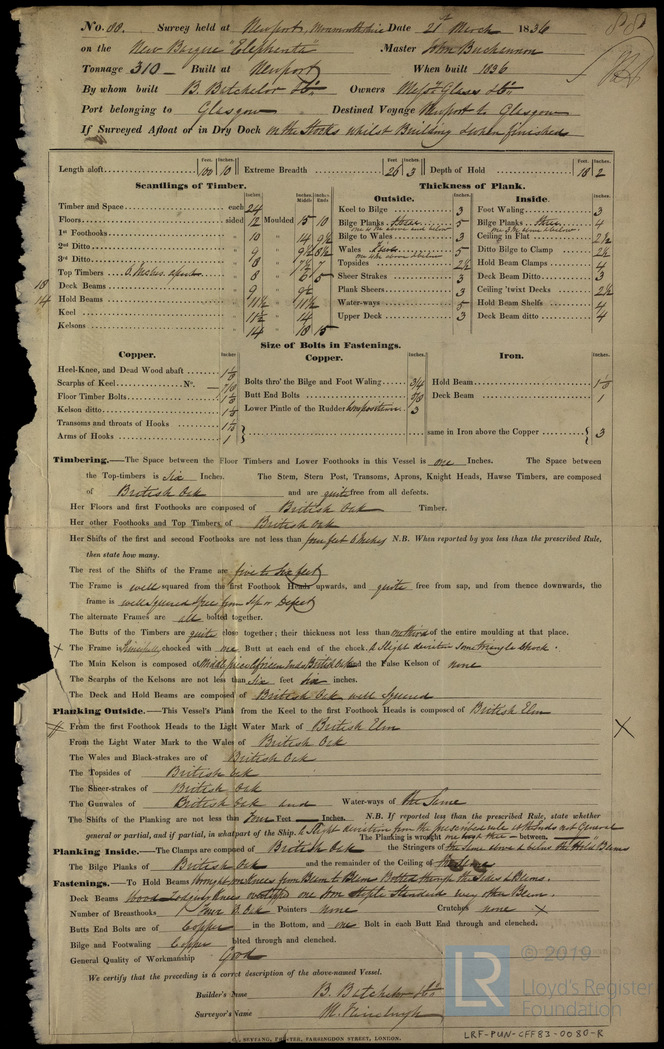 No. 88. Survey held at Newport, Monmouthshire Date 21st March 1836
on the New Barque "Elephanta" Master John Buchannon
Tonnage 310 Built at Newport When built 1836
By whom built B. Batchelor Owners Messrs Glass
Port belonging to Glasgow Destined Voyage Newport to Glasgow
If Surveyed Afloat or in Dry Dock on the Stocks whilst Building & when finished
Length aloft Feet. 100 Inches. 10 Extreme Breadth Feet. 26 Inches. 3 Depth of Hold Feet. 18 Inches. 2
Scantlings of Timber.
Inches Inches Middle Inches Ends
Timber and Space each 24
Floors sided 12 Moulded 15 10
1st Foothooks 10 14 9½
2nd Ditto 9 9½ 8½
3rd Ditto 8 7½ 7
Top Timbers 8 6 5
18 Deck Beams 9 9½
14 Hold Beams 11½ 11½
Keel 11½ 14
Kelsons 14 18 15
Thickness of Plank.
Outside.
Keel to Bilge 3
Bilge Planks 5
Bilge to Wales 3
Wales 5
Topsides 2½
Sheer Strakes 3
Plank Sheers 3
Water-ways 5
Upper Deck 3
Inside.
Foot Waling 3
Bilge Planks 4
Ceiling in Flat 2½
Ditto Bilge to Clamp 2½
Hold Beam Clamps 4
Deck Beam Ditto 3
Ceiling 'twixt Decks 2½
Hold Beam Shelfs 4
Deck Beam ditto 4
Size of Bolts in Fastenings.
Copper.
Heel-Knee, and Dead Wood abaft
Scarphs of Keel No.
Floor Timber Bolts
Kelson ditto
Transoms and throats of Hooks
Arms of Hooks 1
Copper.
Bolts thro' the Bilge and Foot Waling 3/4
Butt End Bolts
Lower Pintle of the Rudder Composition 3
Iron.
Hold Beam
Deck Beam 1
same in Iron above the Copper 3
Timbering.—The Space between the Floor Timbers and Lower Foothooks in this Vessel is one Inches. The Space between
the Top-timbers is Six Inches. The Stem, Stern Post, Transoms, Aprons, Knight Heads, Hawse Timbers, are composed
of British Oak and are quite free from all defects.
Her Floors and first Foothooks are composed of British Oak Timber.
Her other Foothooks and Top Timbers, of British Oak
Her Shifts of the first and second Foothooks are not less than four feet 6 Inches N.B. When reported by you less than the prescribed Rule,
then state how many.
The rest of the Shifts of the Frame are five to Six feet
The Frame is well squared from the first Foothook Heads upwards, and quite free from sap, and from thence downwards, the
frame is well squared & free from Sap or Defect
The alternate Frames are all bolted together.
The Butts of the Timbers are quite close together; their thickness not less than one third of the entire moulding at that place.
× The Frame is Principally chocked with one Butt at each end of the chock. A Slight deviation Some triangle Chock.
The Main Kelson is composed of Middle piece African Ends British Oak and the False Kelson of none
The Scarphs of the Kelsons are not less than Six feet Six inches.
The Deck and Hold Beams are composed of British Oak well Squared
Planking Outside.—This Vessel's Plank from the Keel to the first Foothook Heads is composed of British Elm
From the first Foothook Heads to the Light Water Mark of British Elm ×
From the Light Water Mark to the Wales of British Oak
The Wales and Black-strakes are of British Oak
The Topsides of British Oak
The Sheer-strakes of British Oak
The Gunwales of British Oak and Water-ways of the Same
The Shifts of the Planking are not less than Four Feet — Inches. N.B. If reported less than the prescribed Rule, state whether
general or partial, and if partial, in whatpart of the Ship. A Slight deviation from the prescribed rule at the Ends not General
The Planking is wrought between,
Planking Inside.—The Clamps are composed of British Oak the Stringers of the same above & below the Hold Beams
The Bilge Planks of British Oak and the remainder of the Ceiling of the Same
Fastenings.—To Hold Beams Wrought Iron Knees from Beam to Beam Bolted through the Sides & Beams.
Deck Beams Wood Lodging Knees one Iron Staple Standard every other Beam.
Number of Breasthooks Four B. Oak Pointers none Crutches none ×
Butts End Bolts are of Copper in the Bottom, and one Bolt in each Butt End through and clenched.
Bilge and Footwaling Copper bolted through and clenched.
General Quality of Workmanship Good
We certify that the preceding is a correct description of the above-named Vessel.
Builder's Name B. Batchelor
Surveyor's Name
SEYFANG, PRINTER, FARRINGDON STREET, LONDON.
© 2019
LR
Lloyd's Register
Foundation
LRF-PUN-CFF83-0080-R